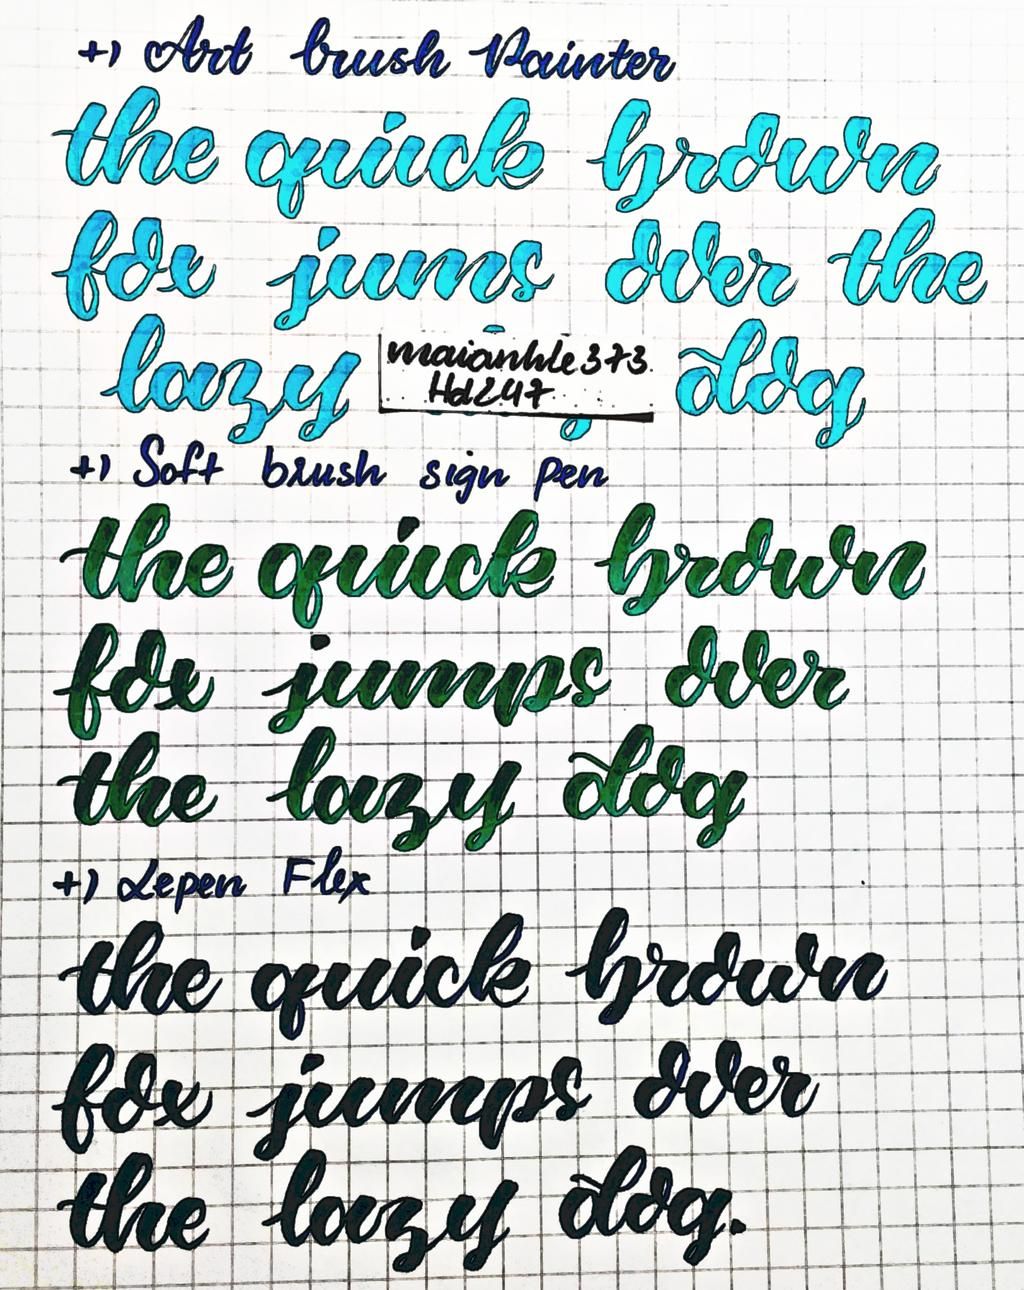 +) Art brush Painter
the quick brown
fox jums over the
lazy dog
maianhle373
Hd247
+) Soft brush sign pen
the quick brown
fox jumps over
the lazy dog
+) Lepen Flex
the quick brown
fox jumps over
the lazy dog.